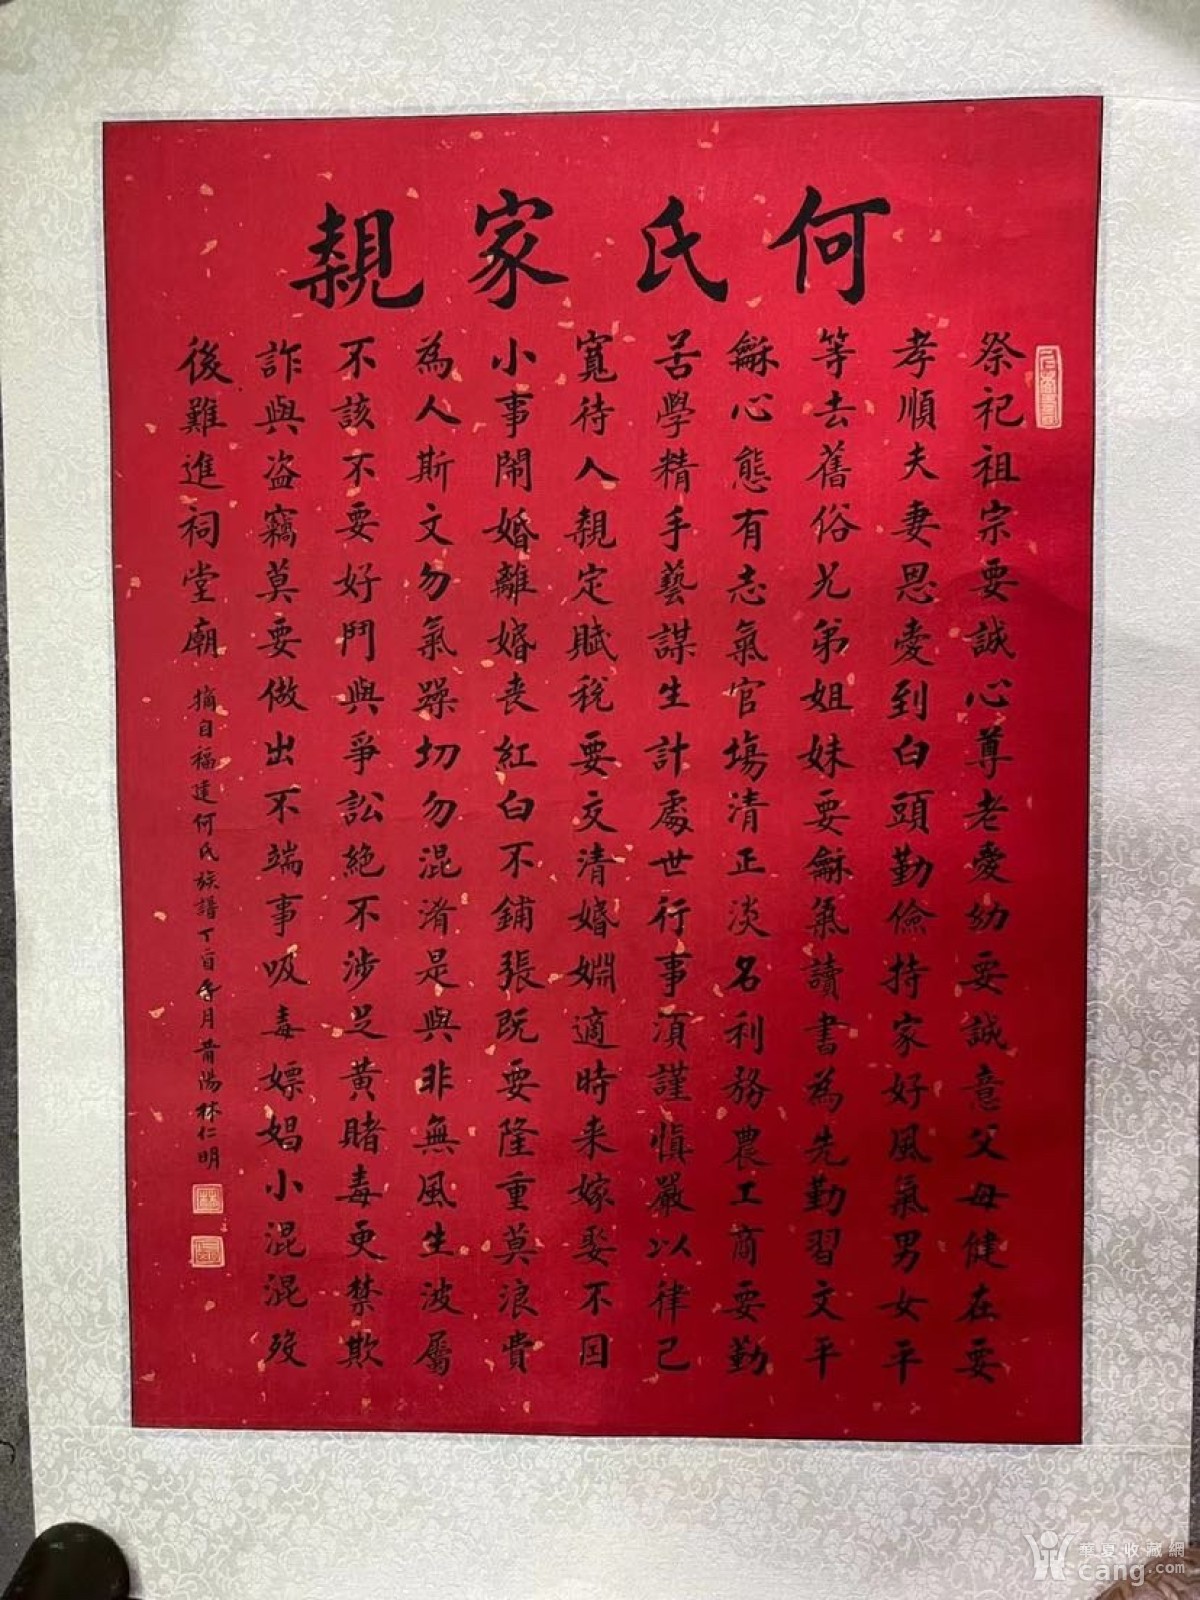 何氏家規
祭祀祖宗要誠心尊老愛幼要誠意父母健在要
孝順夫妻恩愛到白頭勤儉持家好風氣男女平
等去舊俗兄弟姐妹要龢氣讀書為先勤習文平
龢心態有志氣官場清正淡名利務農工商要勤
苦學精手藝謀生計處世行事須謹慎嚴以律己
寬待人規定賦稅要交清婚姻適時来嫁娶不因
小事鬧婚離婚喪紅白不鋪張既要隆重莫浪費
為人斯文勿氣躁切勿混淆是與非無風生波屬
不該不要好鬥與爭訟絕不涉足黃賭毒更禁欺
詐與盗竊莫要做出不端事吸毒嫖娼小混混歿
後難進祠堂廟
摘自福建何氏族譜丁酉年月莆陽林仁明
華夏收藏網
cang.com